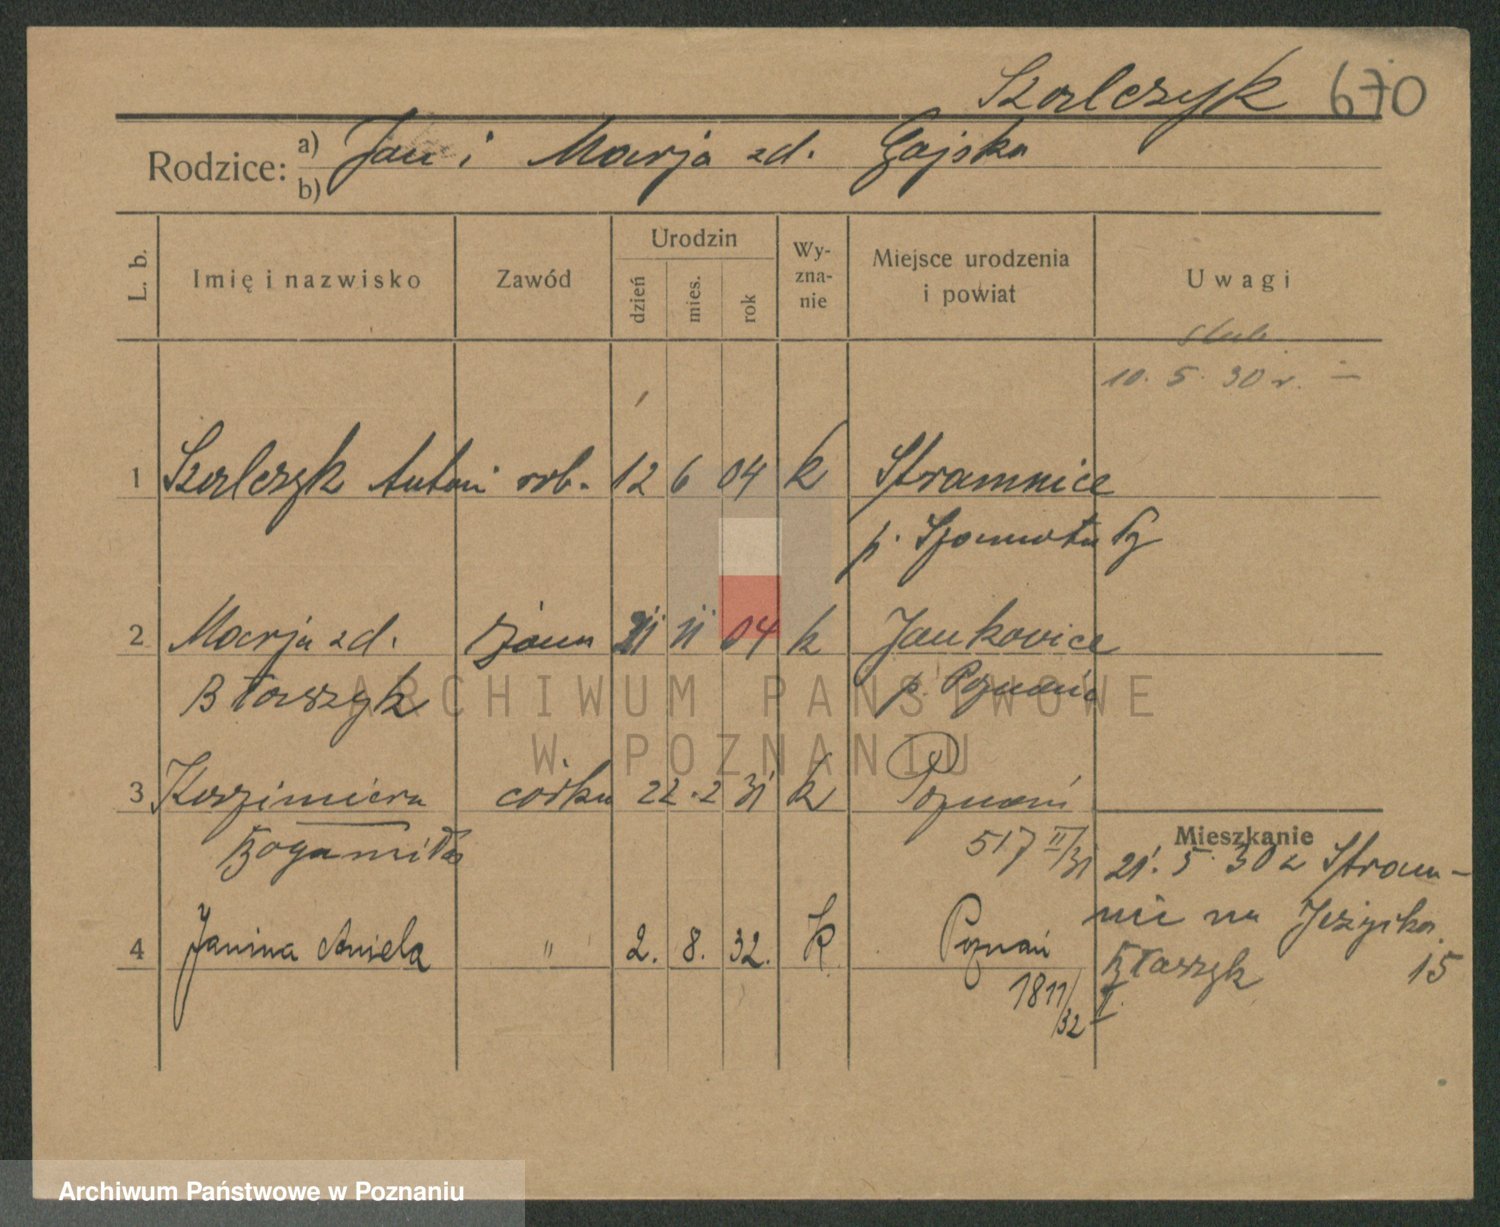 Szolczyk 670
Rodzice: a) Jan i Marja zd. Gajska
b)
L. b. Imię i nazwisko Zawód Urodzin dzień mies. rok Wyznanie Miejsce urodzenia i powiat Uwagi
ślub
10. 5. 30 r. —
1 Szolczyk Antoni rob. 12 6 04 k
p. Szamotuły
2 Marja zd. żona 11 04 k Jankovice
Błaszyk p. Poznanie
3 Kazimiera córka 22 . 2 31 k Poznań
Bogumiła 517 II/31
Mieszkanie
21. 5. 30 z
na Jeżycka
Błaszyk 15
4 Janina Aniela " 2. 8. 32. k Poznań
1811/32 I.
ARCHIWUM PAŃSTWOWE
W POZNANIU
Archiwum Państwowe w Poznaniu